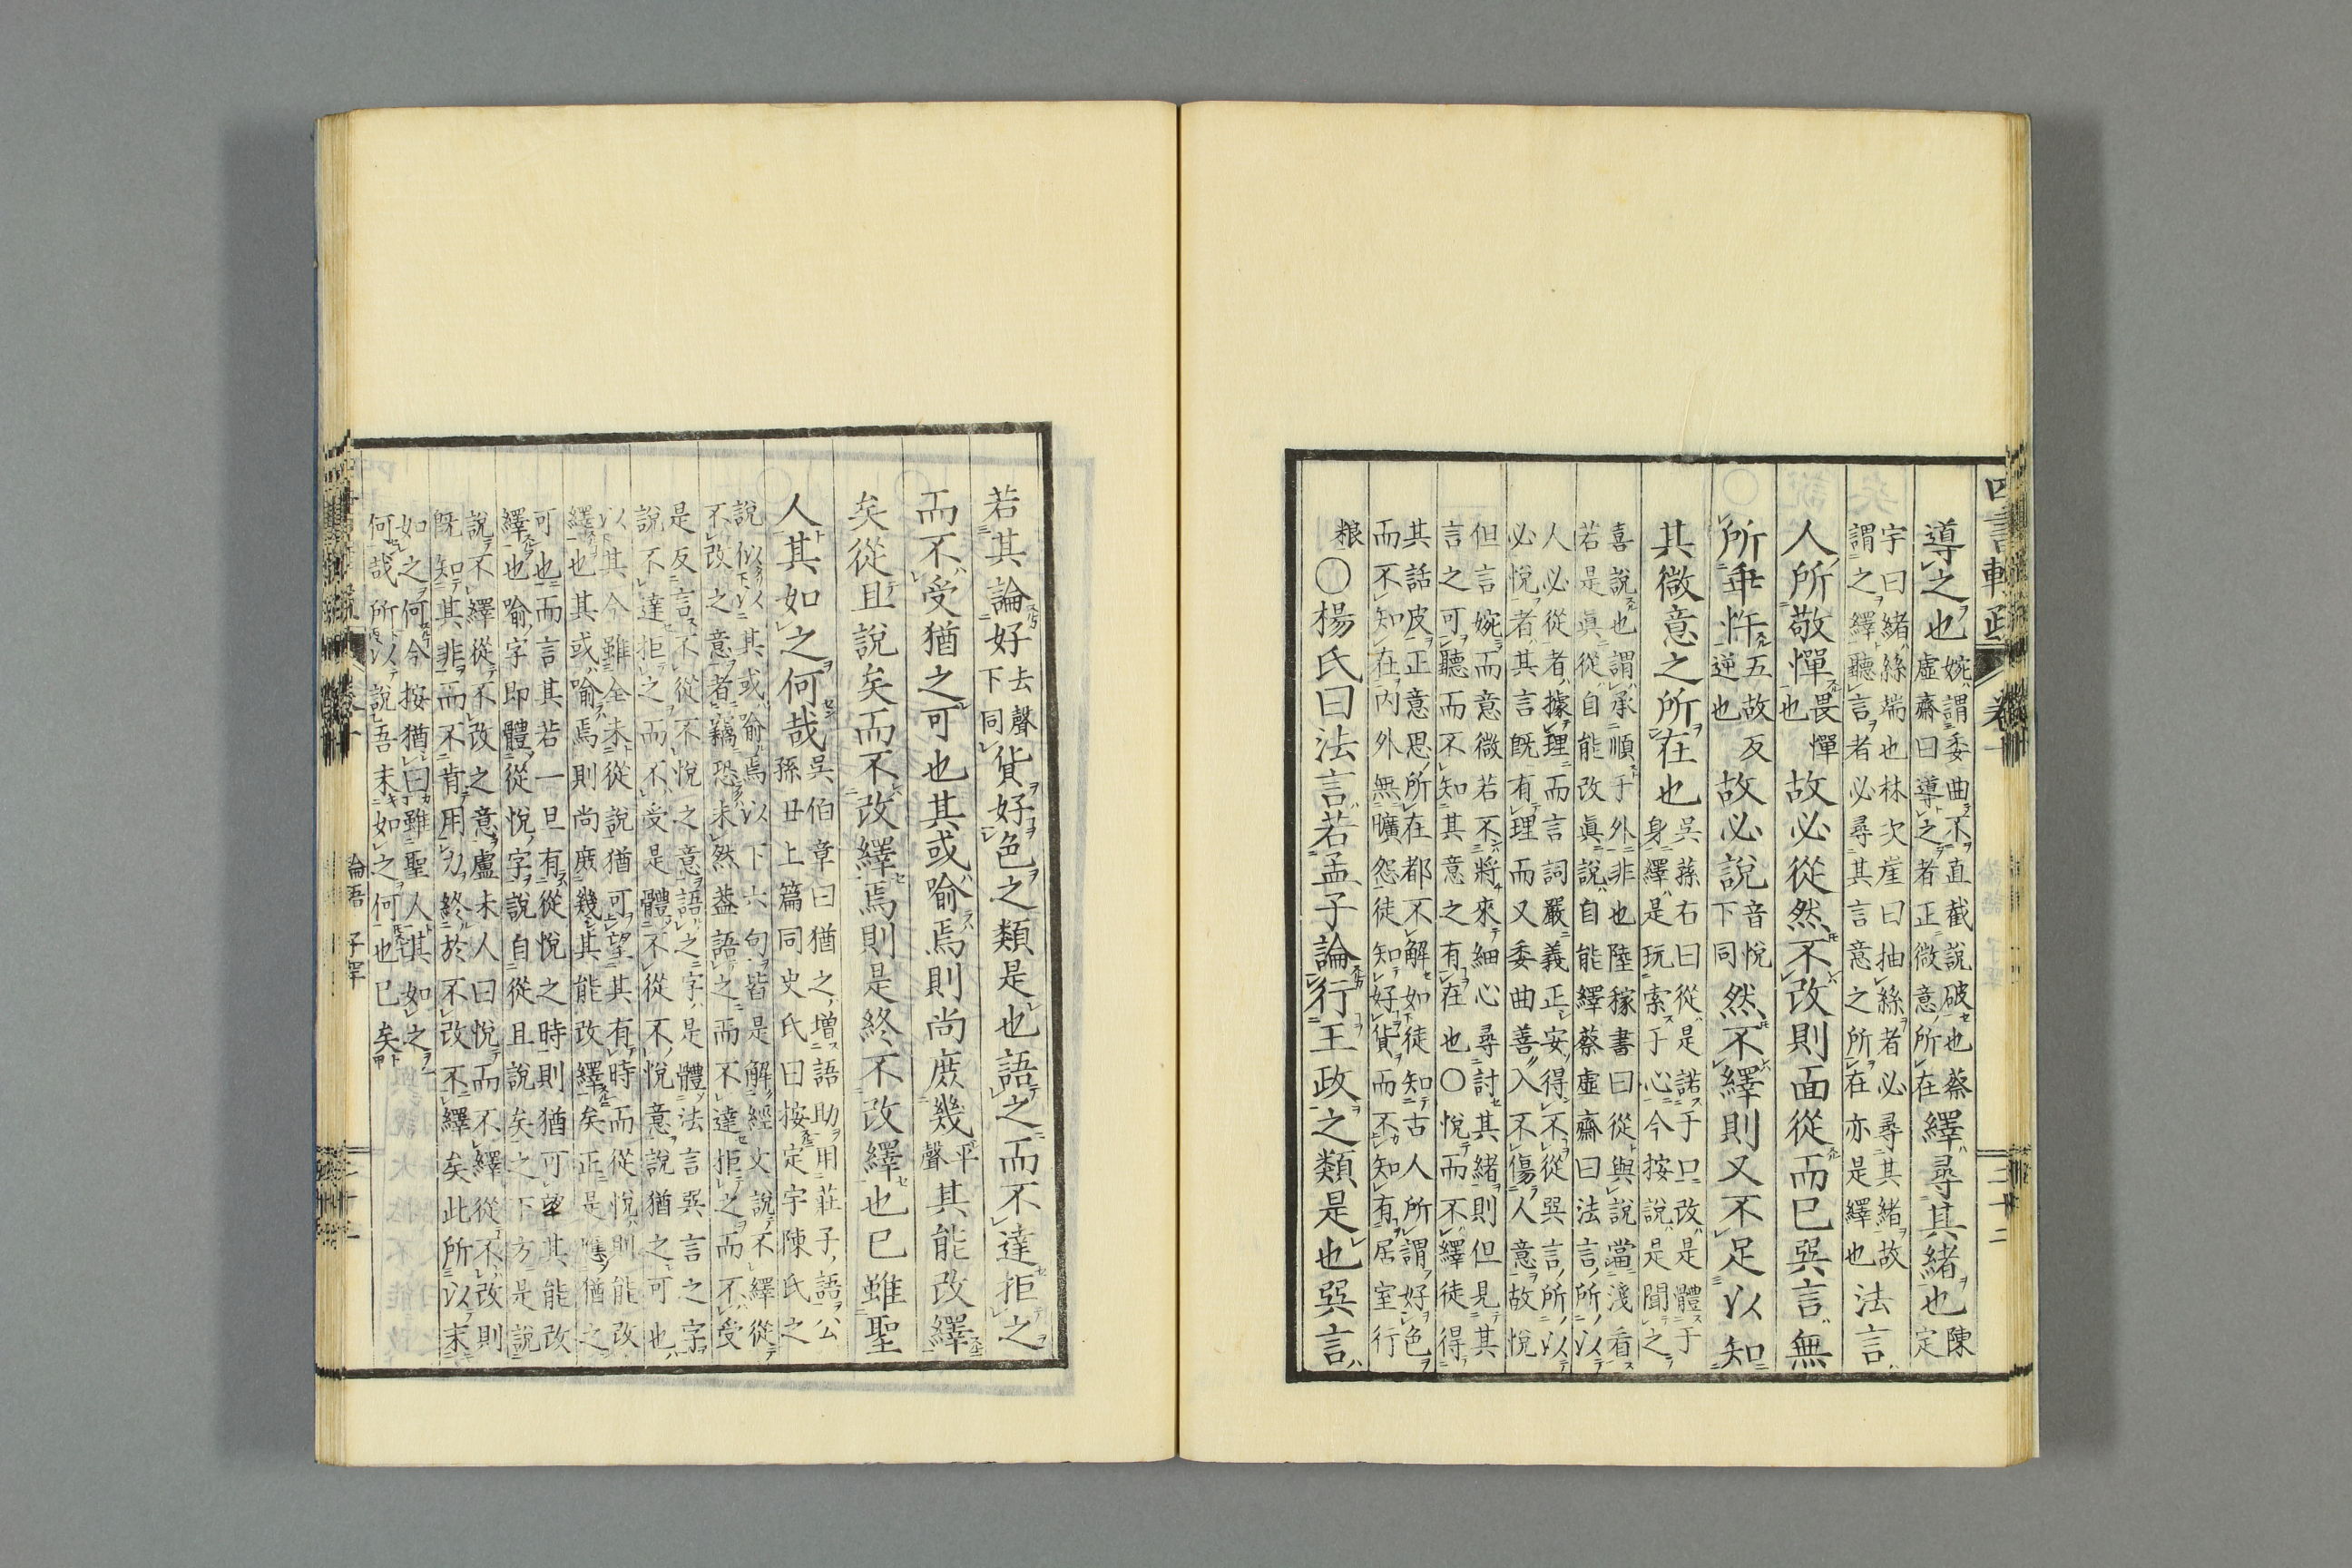 導之也婉謂委曲不直截說破也蔡
虛齋曰導之者正微意所在繹尋其緒也陳
定
宇曰緒絲端也林次崖曰抽絲者必尋其緒故
謂之繹聽言者必尋其言意之所在亦是繹也法言
人所敬憚畏憚
也故必從然不改則面從而已巽言無
所乖忤五故反
逆也故必說音悅
下同然不繹則又不足以知
其微意之所在也吳蓀右曰從是諾于口改是體于
身繹是玩索于心今按說是聞之
喜說也謂承順于外非也陸稼書曰從與說當淺看
若是眞從自能改眞說自能繹蔡虛齋曰法言所以
人必從者據理而言詞嚴義正安得不從巽言所以
必悅者其言旣有理而又委曲善入不傷人意故悅
但言婉而意微若不將來細心尋討其緒則但見其
言之可聽而不知其意之有在也〇悅而不繹徒得
其話皮正意思所在都不解如徒知古人所謂好色
而不知在內外無曠怨徒知好貨而不知有居室行
粮〇楊氏曰法言若孟子論行王政之類是也巽言
若其論好去聲
下同貨好色之類是也語之而不達拒之
而不受猶之可也其或喻焉則尚庶幾平
聲其能改繹
矣從且說矣而不改繹焉則是終不改繹也已雖聖
人其如之何哉吳伯章曰猶之增語助用莊子語公
孫丑上篇同史氏曰按定宇陳氏之
說似以其或喻焉以下六句皆是解經文說不繹從
不改之意者竊恐未然蓋語之而不達拒之而不受
是反言不從不悅之意語之字是體法言巽言之字
說不達拒之而不受是體不從不悅意說猶之可也
以其今雖全未從說猶可望其有時而從悅則能改
繹也其或喻焉則尚庶幾其能改繹矣正是應猶之
可也而言其若一旦有從悅之時則猶可望其能改
繹也喻字卽體從悅字說自從且說矣之下方是說
說不繹從不改之意盧未人曰悅而不繹從不改則
旣知其非而不肯用力終於不改不繹矣此所以末
如之何今按猶曰雖聖人其如之
何哉所以說吾末如之何也已矣
四書輯疏
卷十
二十二
論語 子罕